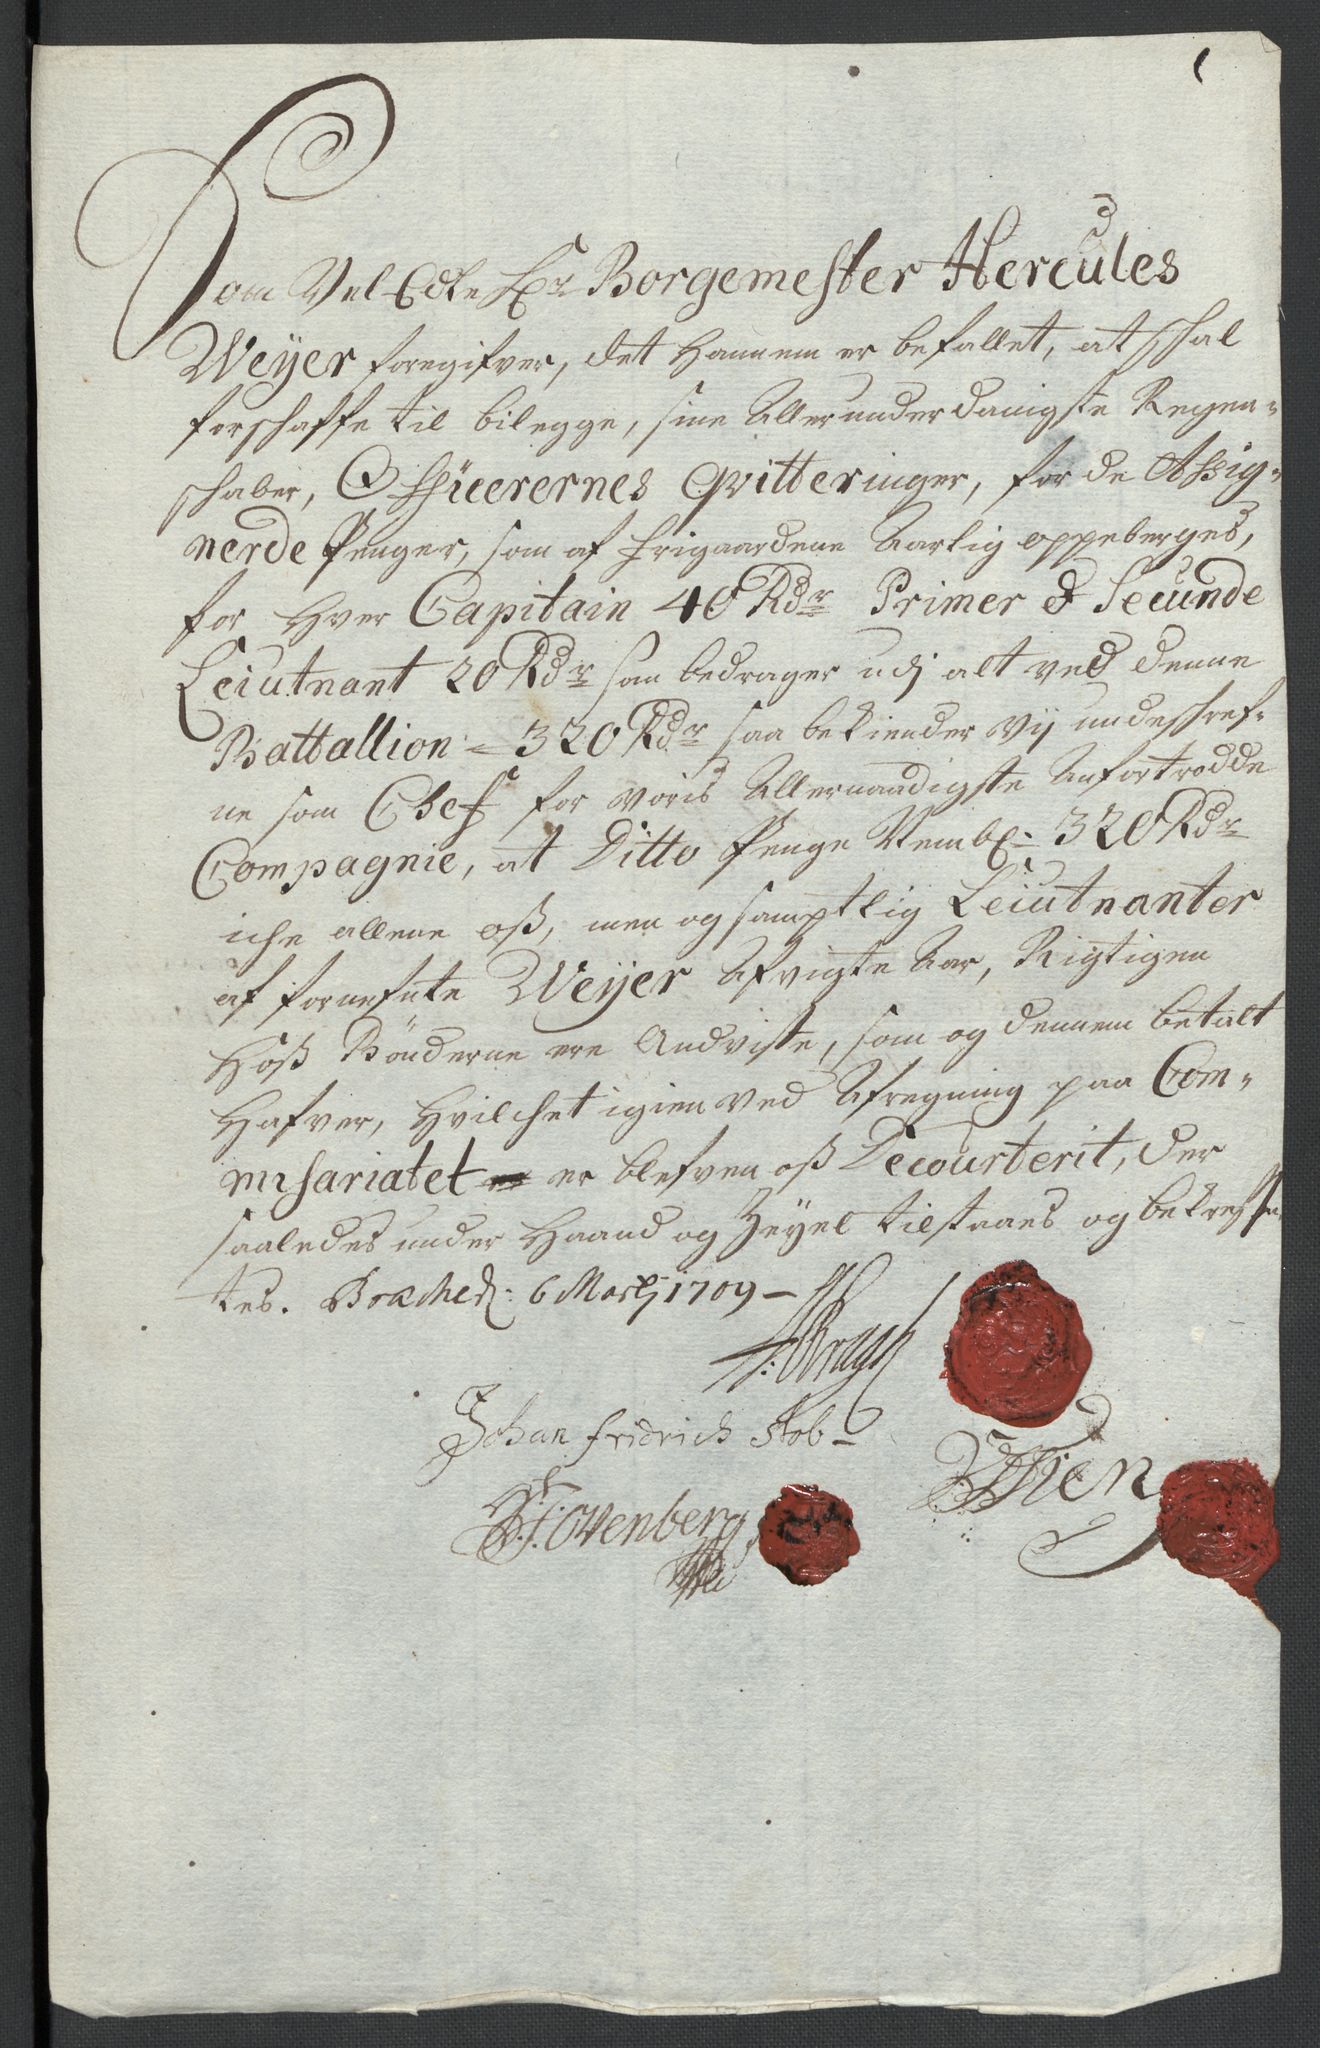 Som Vel Edle Hr Borgemester Hercules
Weyer foregifver, det hannem er befallet, at schal
forschaffe til bilegge, sine Allerunderdanigste Regen-
schaber, Officerernes qvitteringer, for de Assig-
nerde Penger, som af frigaardene Aarlig oppeberges,
for hver Capitain 40 Rdr Primer & Secunde
Leiutnant 20 Rdr som bedrager udj alt ved denne
Battallion = 320 Rdr saa bekiender vij undeschref-
ne som Chef for voris Allernaadigste Anfortrodde
Compagnie, at Ditto Penge Nembl: 320 Rdr
iche allene oß, men og samptlig Leiutnanter
af fornefnte Weyer Afvigte Aar, Rigtigen
hoß Bönderne ere Andviste, som og dennem betalt
hafver, hvilchet igien ved Afregning paa Com-
misariatet er blefven oß Decourterit, der
saaledes under Haand og Zeyel tilstaaes og bekreffte-
tes. 6 Martj 1709 –
Johan fridrich Kob